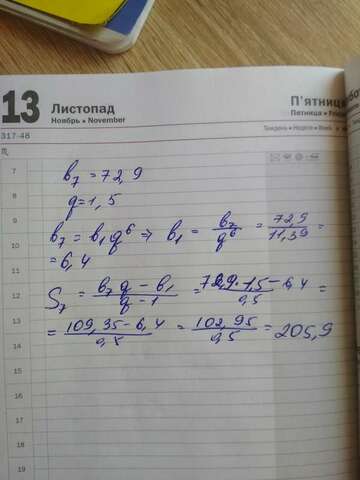 13 Листопад
Ноябрь • November
П'ятниц
Пятница • Frida
317-48
Тиждень • Неделя • Week
7
8
9
10
11
12
13
14
15
16
17
18
19
b₇ = 72,9
q = 1,5
b₇ = b₁q⁶ ⇒ b₁ = b₇/q⁶ = 72,9/11,39 =
= 6,4
S₇ = (b₇q − b₁)/(q − 1) = (72,9·1,5 − 6,4)/0,5 =
= (109,35 − 6,4)/0,5 = 102,95/0,5 = 205,9